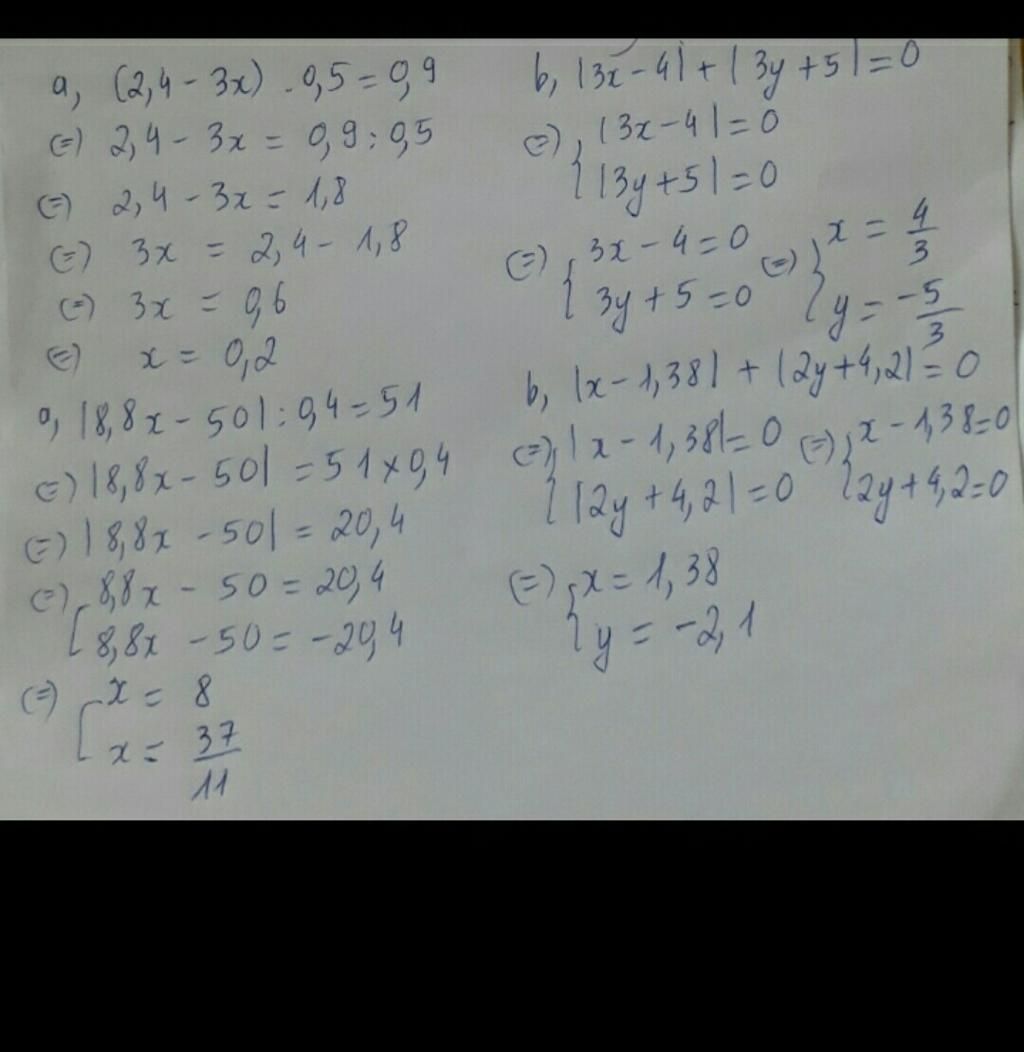 a, (2,4 - 3x) . 0,5 = 0,9
(=) 2,4 - 3x = 0,9 : 0,5
(=) 2,4 - 3x = 1,8
(=) 3x = 2,4 - 1,8
(=) 3x = 0,6
(=) x = 0,2
a, |8,8x - 50| : 0,4 = 51
(=) |8,8x - 50| = 51 x 0,4
(=) |8,8x - 50| = 20,4
(=) [ 8,8x - 50 = 20,4
8,8x - 50 = -20,4
(=) [ x = 8
x = 37/11
b, |3x - 4| + |3y + 5| = 0
(=) { |3x - 4| = 0
|3y + 5| = 0
(=) { 3x - 4 = 0 (=) { x = 4/3
3y + 5 = 0 y = -5/3
b, |x - 1,38| + |2y + 4,2| = 0
(=) { |x - 1,38| = 0 (=) { x - 1,38 = 0
|2y + 4,2| = 0 2y + 4,2 = 0
(=) { x = 1,38
y = -2,1